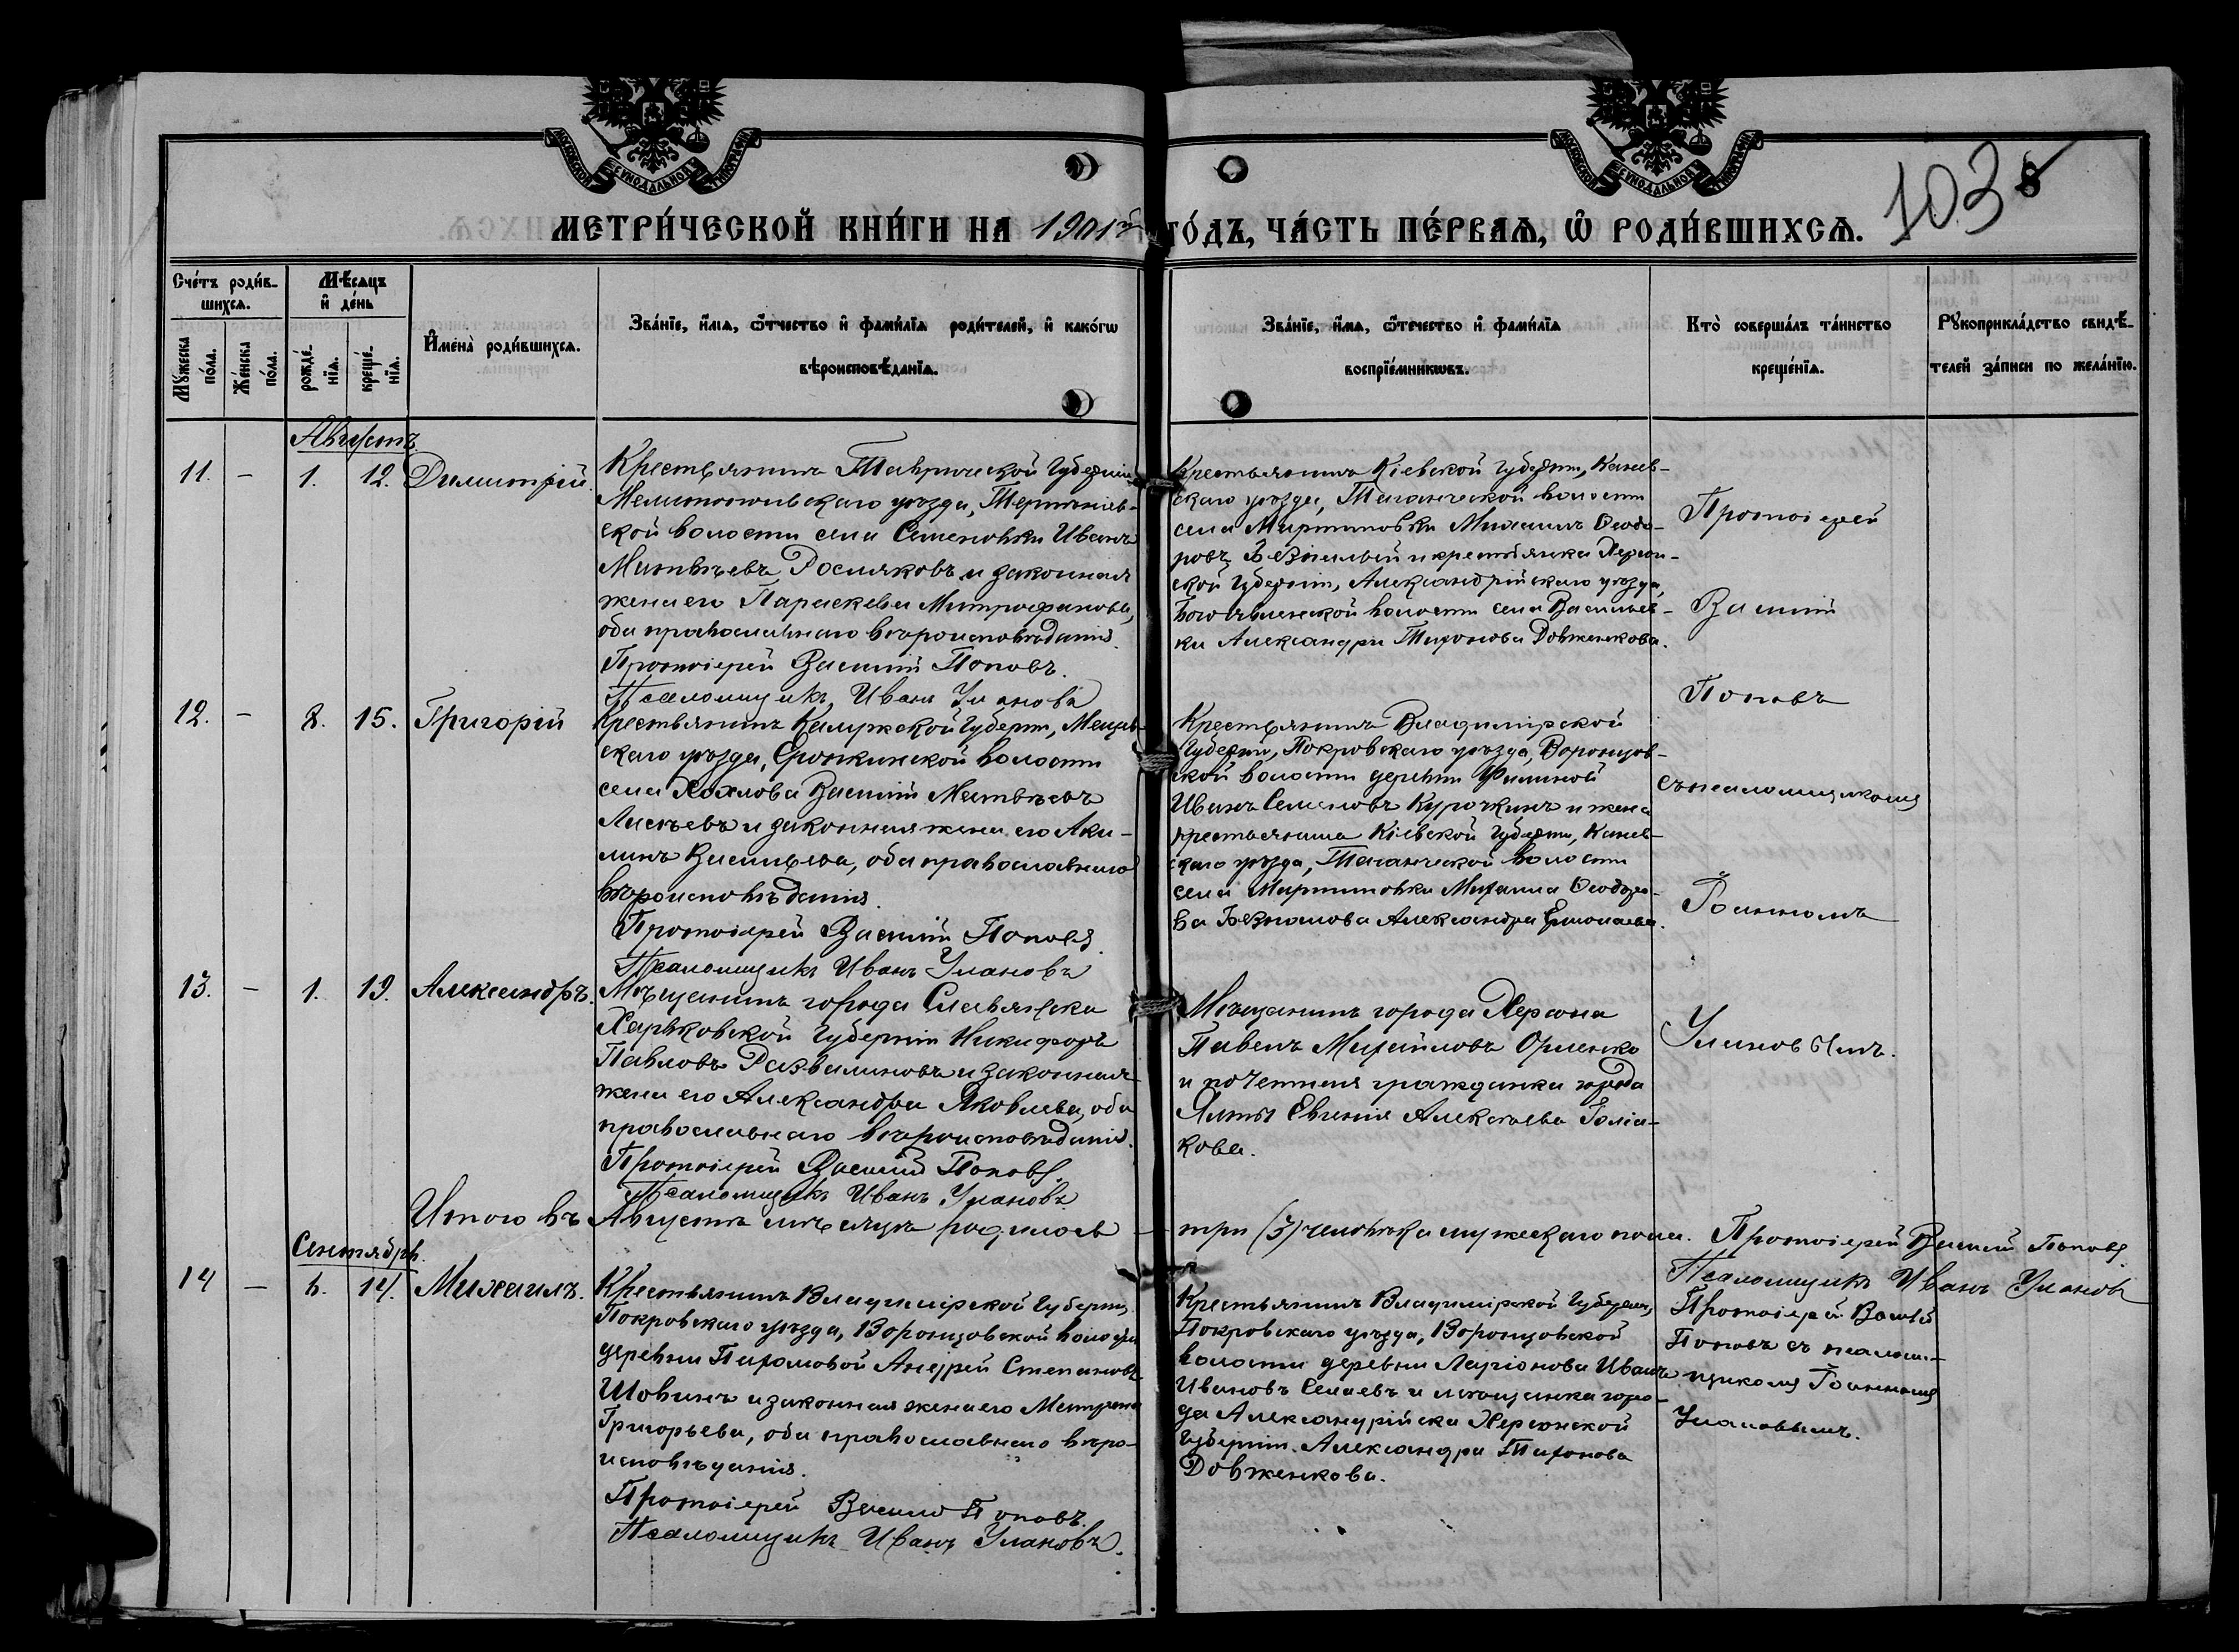 МОСКОВСКОЙ СѴНОДАЛЬНОЙ ТИПОГРАФІИ
МОСКОВСКОЙ СѴНОДАЛЬНОЙ ТИПОГРАФІИ
103
МЕТРИ́ЧЕСКОЙ КНИ́ГИ НА 1901й ГО́ДЪ, ЧА́СТЬ ПЕ́РВАѦ, Ѡ҆ РОДИ́ВШИХСѦ.
Сче́тъ роди́в-
шихсѧ.
Мꙋжеска по́ла.
Же́нска по́ла.
Мѣ́сѧцъ
и҆ де́нь
рожде́-
нїѧ.
креще́-
нїѧ.
И҆мена̀ роди́вшихсѧ.
Зва́нїе, и҆́мѧ, ѻ҆́тчество и҆ фами́лїѧ роди́телей, и҆ како́гѡ
вѣроисповѣ́данїѧ.
Зва́нїе, и҆́мѧ, ѻ҆́течество и҆ фами́лїѧ
воспрїе́мникѡвъ.
Кто̀ соверша́лъ та́инство
креще́нїѧ.
Рꙋкоприкла́дство свидѣ́-
телей за́писи по жела́нїю.
Августъ
11. - 1. 12. Димитрій.
Крестьянинъ Таврической губерніи
Мелитопольскаго уѣзда,
ской волости села Семеновки Иванъ
Матвѣевъ Росляковъ и законная
жена его Параскева Митрофанова,
оба православнаго вѣроисповѣданія.
Протоіерей Василій Поповъ.
Псаломщикъ Иванъ Улановъ
Крестьянинъ Кіевской губерніи, Канев-
скаго уѣзда, Таганческой волости
села Мартыновки Михаилъ Ѳеодо-
ровъ и крестьянка Херсон-
ской губерніи, Александрійскаго уѣзда,
волости села Васильев-
ки Александра Тихонова Довженкова.
Протоіерей
Василій
Поповъ
съ псаломщикомъ
Іоанномъ
Улановымъ.
12. - 8. 15. Григорій
Крестьянинъ Калужской губерніи, Мещов-
скаго уѣзда, волости
села Хохлова Василій Матвѣевъ
и законная жена его Аки-
лина Васильева, оба православнаго
вѣроисповѣданія.
Протоіерей Василій Поповъ
Псаломщикъ Иванъ Улановъ
Крестьянинъ Владимірской
губерніи, Покровскаго уѣзда, Воронцов-
ской волости деревни Филиной
Иванъ Семеновъ Курочкинъ и жена
крестьянина Кіевской губерніи, Канев-
скаго уѣзда, Таганческой волости
села Мартыновки Михаила Ѳеодоро-
ва Александра Ермолаева.
13. - 1. 19. Александръ.
Мѣщанинъ города Славянска
Харьковской губерніи Никифоръ
Павловъ Развалиновъ и законная
жена его Александра Яковлева, оба
православнаго вѣроисповѣданія.
Протоіерей Василій Поповъ.
Псаломщикъ Иванъ Улановъ
Мѣщанинъ города Херсона
Павелъ Михайловъ Орленко
и почетная гражданка города
Ялты Евгенія Алексѣева
кова.
Итого въ Августѣ мѣсяцѣ родилось - три (3) человѣка мужескаго пола. Протоіерей Василій Поповъ.
Псаломщикъ Иванъ Улановъ
Сентябрь.
14 - 14. Михаилъ.
Крестьянинъ Владимірской губерніи
Покровскаго уѣзда, Воронцовской волости
деревни Пахомовой Андрей Степановъ
Шовинъ и законная жена его Матрона
Григорьева, оба православнаго вѣро-
исповѣданія.
Протоіерей Василій Поповъ.
Псаломщикъ Иванъ Улановъ.
Крестьянинъ Владимірской губерніи,
Покровскаго уѣзда, Воронцовской
волости деревни Ларіонова Иванъ
Ивановъ и мѣщанка горо-
да Александрійска Херсонской
губерніи Александра Тихонова
Довженкова.
Протоіерей Василій
Поповъ съ псалом-
щикомъ Іоанномъ
Улановымъ.